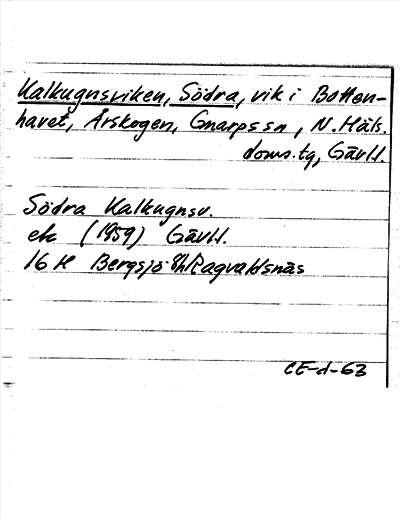 Kalkugnsviken, Södra, vik i Botten-
havet, Årskogen, Gnarps sn, N. Häls.
doms.tg, Gävll.
Södra Kalkugnsv.
ek (1959) Gävll.
16 H Bergsjö Ragvaldsnäs
CE-d-63